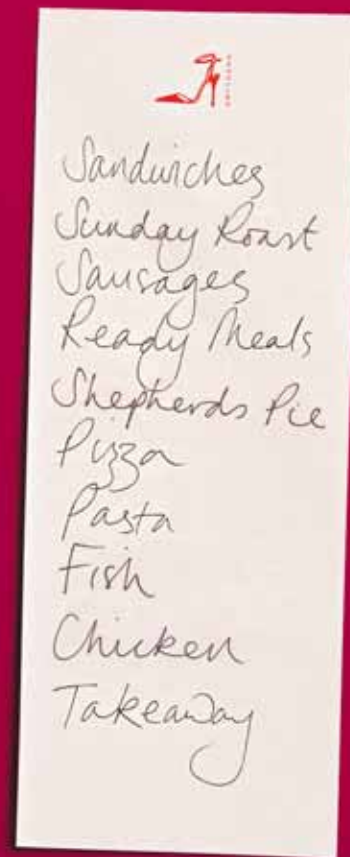 Sandwiches
Sunday Roast
Sausages
Ready Meals
Shepherds Pie
Pizza
Pasta
Fish
Chicken
Takeaway